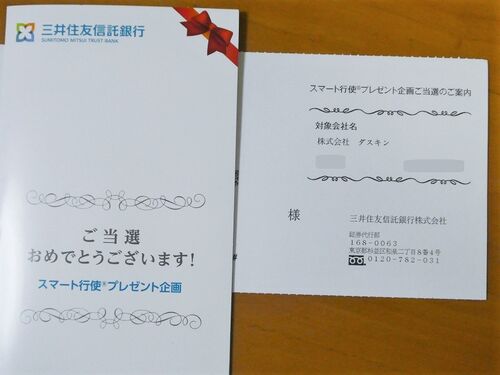 三井住友信託銀行
SUMITOMO MITSUI TRUST BANK
ご当選
おめでとうございます!
スマート行使®プレゼント企画
スマート行使®プレゼント企画ご当選のご案内
対象会社名
株式会社 ダスキン
様
三井住友信託銀行株式会社
証券代行部
168-0063
東京都杉並区和泉二丁目8番4号
0120-782-031